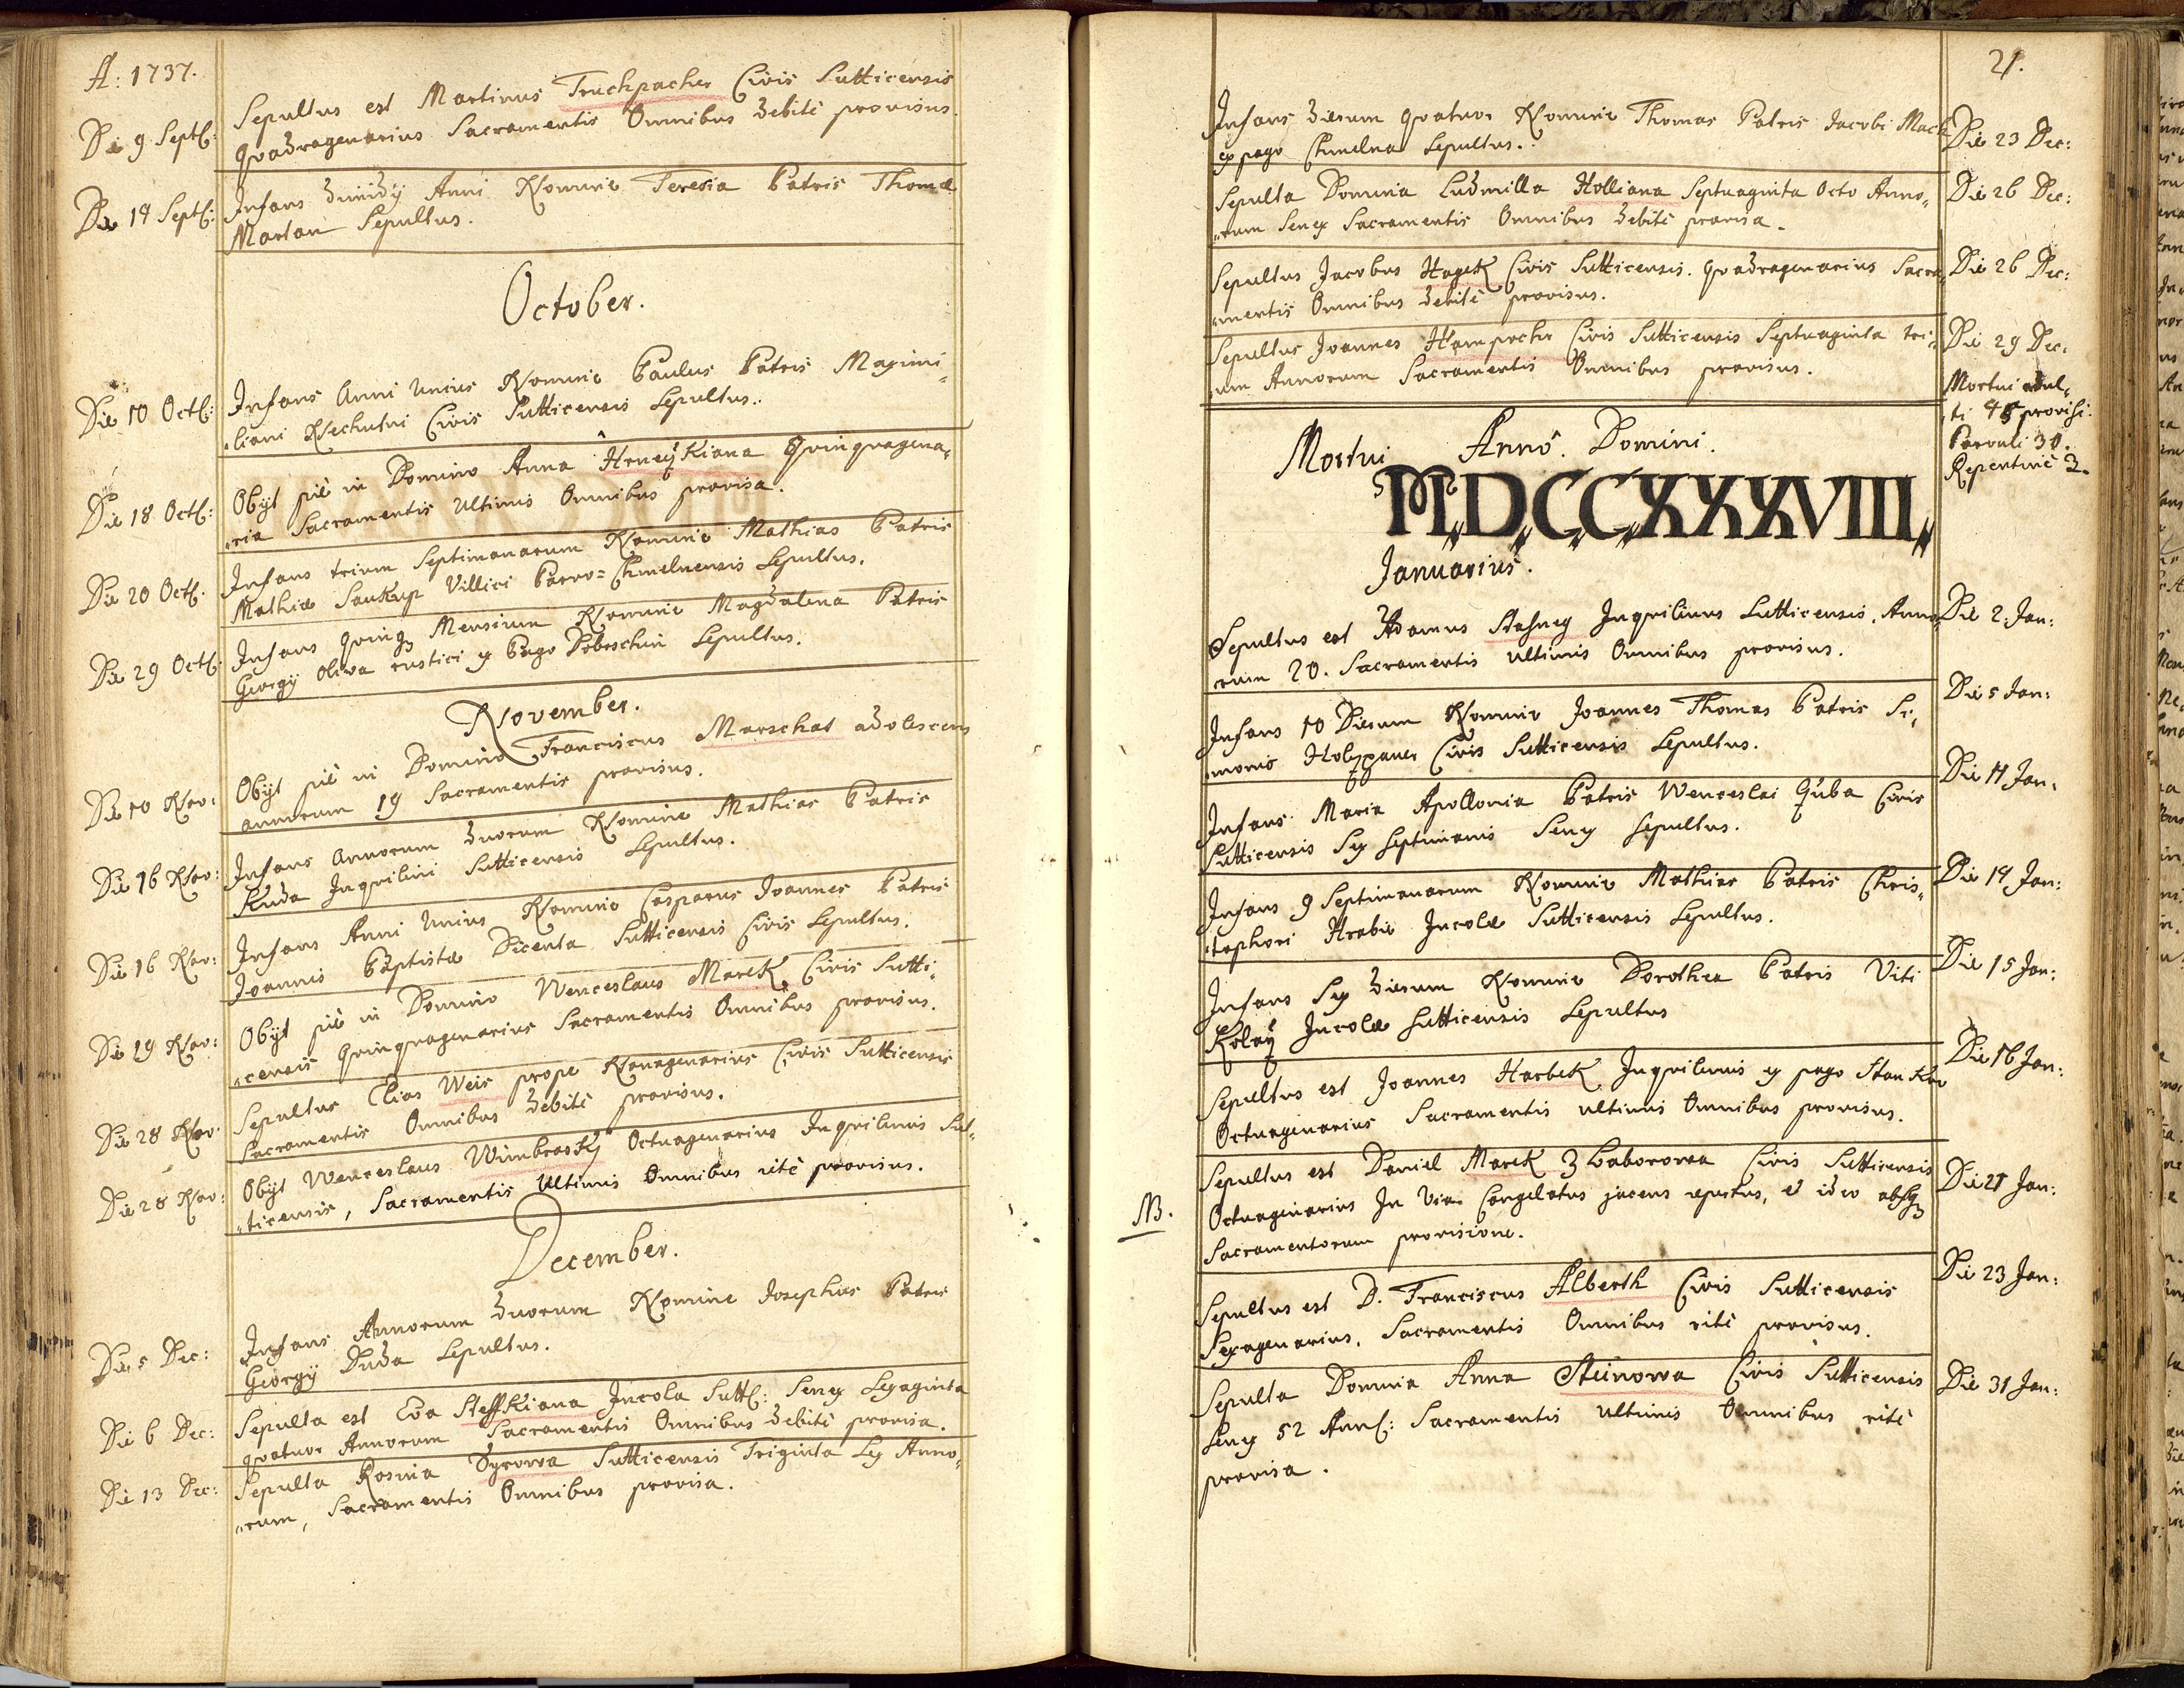 A: 1737.
Die 9 Septb:
Sepultus est Martinus Truchpacher Civis Sutticensis
Quadragenarius Sacramentis Omnibus debitè provisus.
Die 14 Septb:
Infans dimidÿ Anni Nomine Teresia Patris Thomæ
Martan Sepultus.
October.
Die 10 Octb:
Infans Anni Unius Nomine Paulus Patris Maximi„
„liani Nechutni Civis Sutticensis Sepultus.
Die 18 Octb:
Obÿt piè in Domino Anna Hrneÿkiana Quinquagena„
„ria Sacramentis Ultimis Omnibus provisa.
Die 20 Octb.
Infans trium Septimanarum Nomine Mathias Patris
Mathiæ Saukup Villici Parvo=Chmelnensis Sepultus.
Die 29 Octb.
Infans Quinq Mensium Nomine Magdalena Patris
Georgÿ Oliva rustici ex Pago Dobrschin Sepultus.
November.
Die 10 Nov:
Obÿt piè in Domino Franciscus Marschat adolescens
annorum 19 Sacramentis provisus.
Die 16 Nov:
Infans Annorum duorum Nomine Mathias Patris
Kuda Inquilini Sutticensis Sepultus.
Die 16 Nov:
Infans Anni Unius Nomine Casparus Joannes Patris
Joannis Baptistæ Picenta Sutticensis Civis Sepultus.
Die 19 Nov:
Obÿt piè in Domino Wenceslaus Marek Civis Sutti„
„censis Quinquagenarius Sacramentis Omnibus provisus.
Die 28 Nov:
Sepultus Elias Weis prope Nonagenarius Civis Sutticensis
Sacramentis Omnibus debitè provisus.
Die 28 Nov:
Obÿt Wenceslaus Wimbraskÿ Octuagenarius Inquilinus Sut„
„ticensis, Sacramentis Ultimis Omnibus ritè provisus.
December.
Die 5 Dec:
Infans Annorum duorum Nomine Josephus Patris
Georgÿ Duda Sepultus.
Die 6 Dec:
Sepulta est Eva Steffkiana Incola Suttb: Senex Sexaginta
quatuor Annorum Sacramentis Omnibus debitè provisa.
Die 13 Dec:
Sepulta Rosina Syrowa Sutticensis Triginta Sex Anno„
„rum, Sacramentis Omnibus provisa.
21.
Infans dierum quatuor Nomine Thomas Patris Jacobi
ex pago Chmelna Sepultus.
Die 23 Dec:
Sepulta Domina Ludmilla Holliana Septuaginta Octo Anno„
„rum Senex Sacramentis Omnibus debitè provisa.
Die 26 Dec:
Sepultus Jacobus Hagek Civis Sutticensis. Quadragenarius Sacra„
„mentis Omnibus debitè provisus.
Die 26 Dec:
Sepultus Joannes Civis Sutticensis Septuaginta tri„
„um Annorum Sacramentis Omnibus provisus.
Die 29 Dec.
Mortui adul„
„ti provisi.
Parvuli 30.
Repentinè 2.
Mortui Annô Domini.
M„D„C„C„XXXVIII„
Januarius.
Sepultus est Adamus Stasney Inquilinus Sutticensis, Anno„
rum 20. Sacramentis ultimis Omnibus provisus.
Die 2. Jan:
Infans 10 Dierum Nomine Joannes Thomas Patris Si„
„monis Holtzpauer Civis Sutticensis Sepultus.
Die 5 Jan:
Infans Maria Apollonia Patris Wenceslai Quba Civis
Sutticensis Sex septimanis Senex sepultus.
Die 11 Jan.
Infans 9 Septimanarum Nomine Mathias Patris Chris„
„tophori Hrabie Incolæ Sutticensis Sepultus.
Die 14 Jan:
Infans Sex dierum Nomine Dorothea Patris Viti
Kolaÿ Incolæ Sutticensis Sepultus
Die 15 Jan:
Sepultus est Joannes Harbek Inquilinus ex pago Stankow
Octuagenarius Sacramentis ultimis Omnibus provisus.
Die 16 Jan:
NB.
Sepultus est Daniel Marek z Laborowa Civis Sutticensis
Octuagenarius In Via Congelatus jacens repertus, et ideo absq
Sacramentorum provisione.
Die 21 Jan:
Sepultus est D. Franciscus Alberth Civis Sutticensis
Sexagenarius, Sacramentis Omnibus ritè provisus.
Die 23 Jan:
Sepulta Domina Anna Steinowa Civis Sutticensis
Senex 52 Annb: Sacramentis Ultimis Omnibus ritè
provisa.
Die 31 Jan: